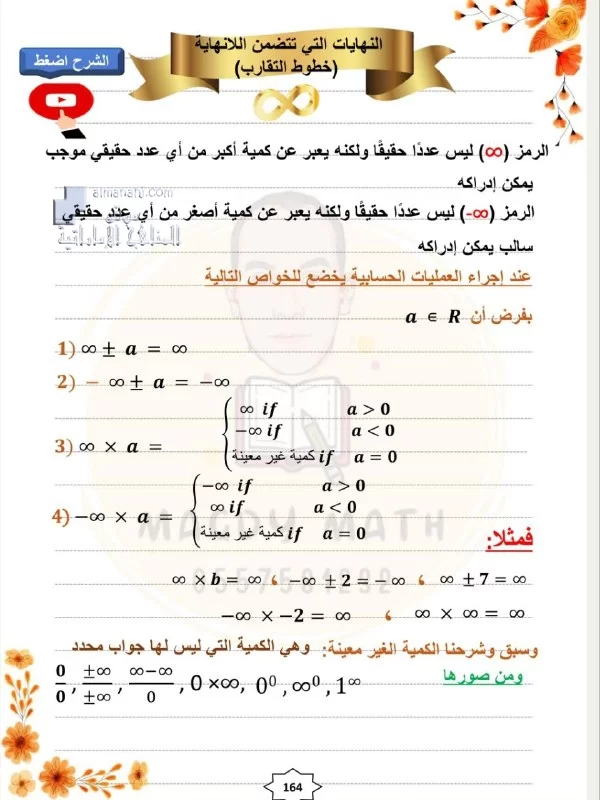 النهايات التي تتضمن اللانهاية
(خطوط التقارب)
الشرح اضغط
الرمز (∞) ليس عددًا حقيقًا ولكنه يعبر عن كمية أكبر من أي عدد حقيقي موجب
يمكن إدراكه
almanahj.com
موقع
المناهج الإماراتية
الرمز (∞-) ليس عددًا حقيقًا ولكنه يعبر عن كمية أصغر من أي عدد حقيقي
سالب يمكن إدراكه
عند إجراء العمليات الحسابية يخضع للخواص التالية
بفرض أن a ∈ R
1) ∞ ± a = ∞
2) − ∞ ± a = −∞
3) ∞ × a = { ∞ if a > 0
−∞ if a < 0
كمية غير معينة if a = 0
4) −∞ × a = { −∞ if a > 0
∞ if a < 0
كمية غير معينة if a = 0
MAGDY MATH
0557581292
فمثلا:
∞ ± 7 = ∞ ، −∞ ± 2 = −∞ ، ∞ × b = ∞
∞ × ∞ = ∞ ، −∞ × −2 = ∞
وسبق وشرحنا الكمية الغير معينة: وهي الكمية التي ليس لها جواب محدد
ومن صورها
0/0 , ±∞/±∞ , ∞−∞/0 , 0 ×∞, 0⁰ , ∞⁰ , 1^∞
164